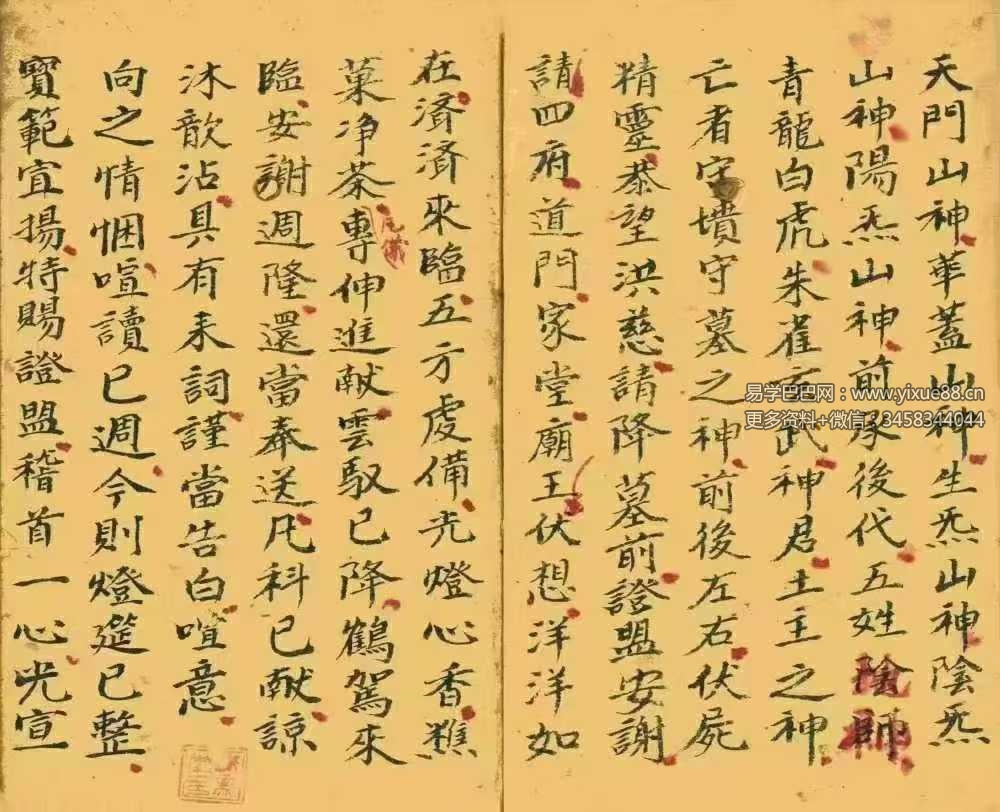 天門山神華蓋山神生炁山神陰炁
山神陽炁山神前承後代五姓陰師
青龍白虎朱雀玄武神君土主之神
亡者守墳守墓之神前後左右伏屍
精靈恭望洪慈請降墓前證盟安謝
請四府道門家堂廟王伏想洋洋如
在濟濟來臨五方處備光燈心香樵
菓净茶專伸進献雲馭已降鶴駕來
凡儀
臨安謝週隆還當奉送凡科已献諒
沐歆沾具有来詞謹當告白喧意
向之情悃喧讀已週今則燈筵已整
寶範宜揚特賜證盟稽首一心光宣
易学巴巴网：www.yixue88.cn
更多资料+微信：3458344044